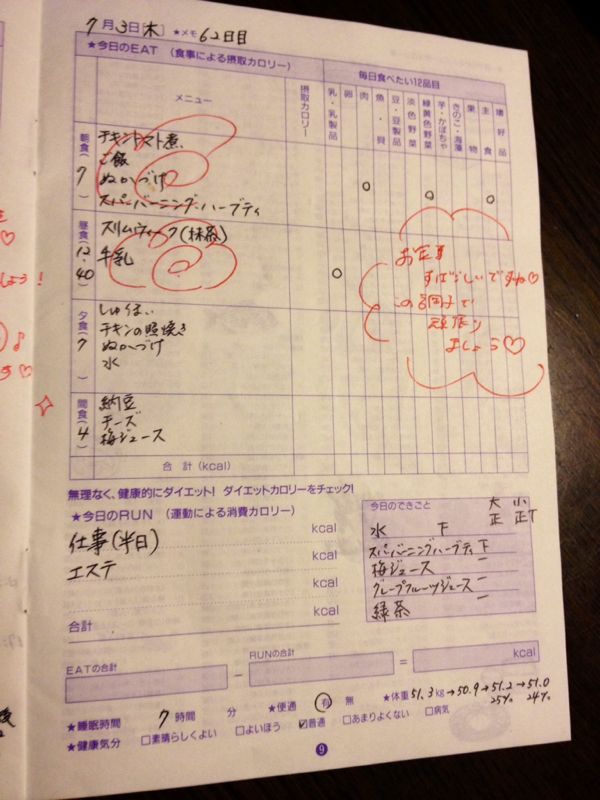 7月3日[木] ★メモ 62日目
★今日のEAT (食事による摂取カロリー)
毎日食べたい12品目
メニュー
摂取カロリー
乳・乳製品
卵
肉
魚・貝
豆・豆製品
淡色野菜
緑黄色野菜
芋・かぼちゃ
きのこ・海藻
果物
主食
嗜好品
朝食(7)
チキントマト煮
ご飯
ぬかづけ
スパーバーニング・ハーブティ
昼食(12.40)
スリムウィーク(抹茶)
牛乳
お食事
すばらしいですね♡
この調子で
頑張り
ましょう♡
夕食(7)
しゅうまい
チキンの照焼き
ぬかづけ
水
間食(4)
納豆
チーズ
梅ジュース
合計(kcal)
無理なく、健康的にダイエット! ダイエットカロリーをチェック!
★今日のRUN (運動による消費カロリー)
仕事(半日) kcal
エステ kcal
kcal
kcal
合計
今日のできごと
大 小
正 正T
水 下
スパバーニングハーブティ 下
梅ジュース 一
グレープフルーツジュース 一
緑茶 一
EATの合計 − RUNの合計 = kcal
★睡眠時間 7時間 分 ★便通 有 無 ★体重 51.3kg→50.9→51.2→51.0
25% 24%
★健康気分 □素晴らしくよい □よいほう ☑普通 □あまりよくない □病気
9
しょう!